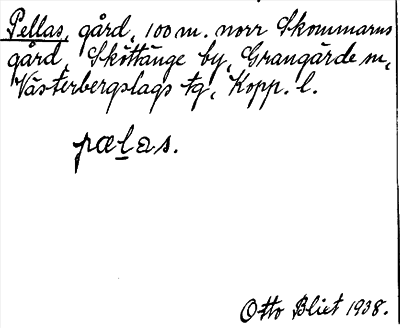 Pellas, gård, 100 m. norr Skommarns
gård, Sköttänge by, Grangärde sn,
Västerbergslags tg, Kopp. l.
pælas.
Otto Blixt 1938.